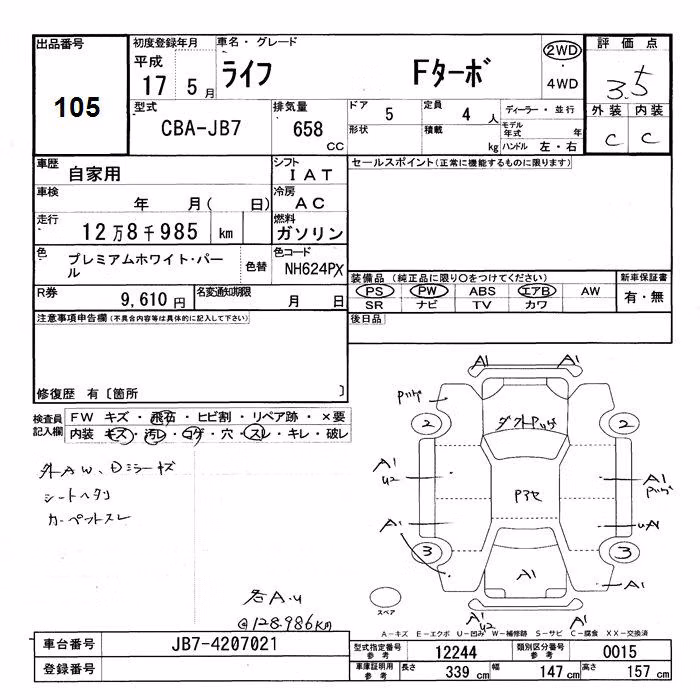 出品番号
105
初度登録年月
平成 17 5月
車名・グレード
ライフ Fターボ
2WD
・
4WD
評価点
3.5
外装 内装
C C
型式
CBA-JB7
排気量
658 cc
ドア 5
定員 4 人
形状
積載 kg
ディーラー・並行
モデル年式 年
ハンドル 左・右
車歴
自家用
シフト
IAT
車検
年 月( 日)
冷房
AC
走行
12万8千985 km
燃料
ガソリン
色
プレミアムホワイト・パール
色替
色コード
NH624PX
R券
9,610円
名変通知期限
月 日
セールスポイント(正常に機能するものに限ります)
装備品(純正品に限り○をつけてください)
PS PW ABS エアB AW
SR ナビ TV カワ
新車保証書
有・無
後日品
注意事項申告欄(不具合内容等は具体的に記入して下さい)
修復歴 有〔箇所 〕
検査員記入欄
FW キズ・飛石・ヒビ割・リペア跡・×要
内装 キズ・汚レ・コゲ・穴・スレ・キレ・破レ
シートヘタリ
カーペットスレ
各A.U
@128.986KM
A1 A1
2 2
A1
U2
A1
Pハゲ
A1
UA
3 3
A1
A1
A1
U2
A1
スペア
A-キズ E-エクボ U-凹み W-補修跡 S-サビ C-腐食 XX-交換済
車台番号
JB7-4207021
登録番号
型式指定番号 参考
12244
類別区分番号 参考
0015
車庫証明用 参考
長さ 339 cm
幅 147 cm
高さ 157 cm